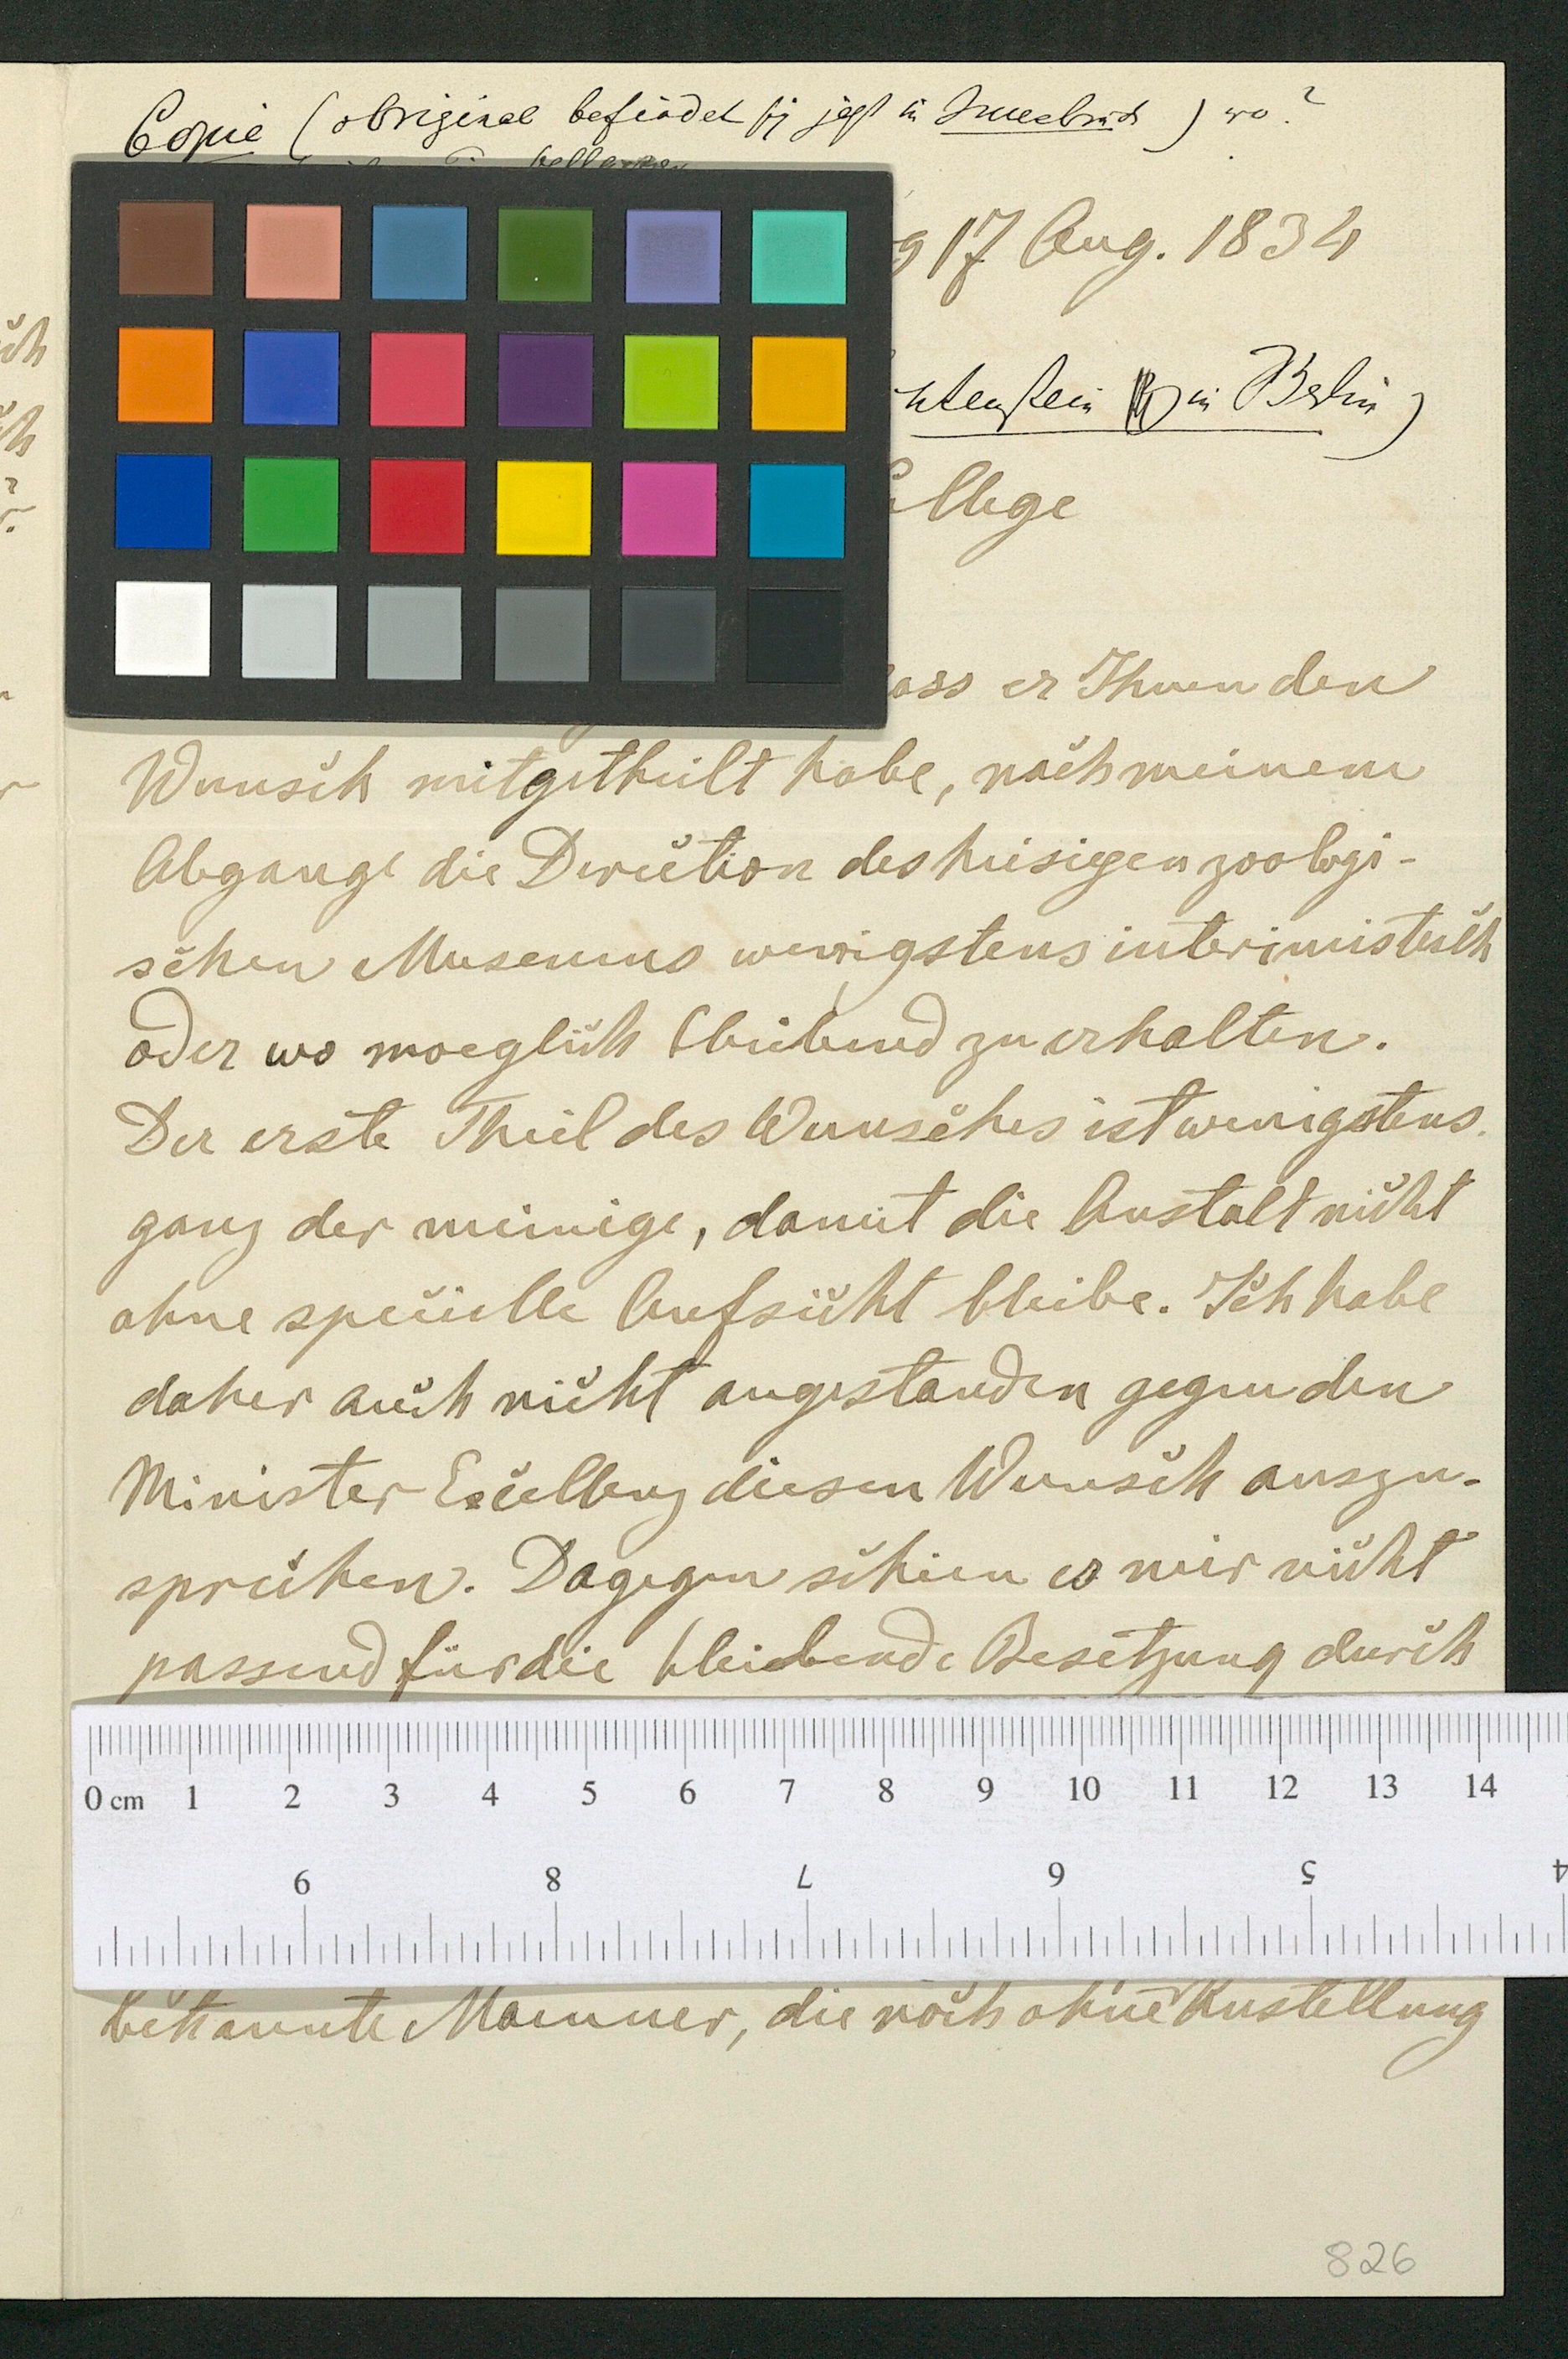 Copie (Original befindet sich jetzt in Innsbruck) wo?
17 Aug. 1834
in Berlin)
dass er Ihnen den
Wunsch mitgetheilt habe, nach meinem
Abgange die Direction des hiesigen zoologi-
schen Museums wenigstens interimistisch
oder wo moeglich bleibend zu erhalten.
Der erste Theil des Wunsches ist wenigstens
ganz der meinige, damit die Anstalt nicht
ohne specielle Aufsicht bleibe. Ich habe
daher auch nicht angestanden gegen den
Minister Excellenz diesen Wunsch auszu-
sprechen. Dagegen schien es mir nicht
passend für die bleibende Besetzung durch
0 cm 1 2 3 4 5 6 7 8 9 10 11 12 13 14
9 8 7 6 5 4
bekannte Maenner, die noch ohne Anstellung
826